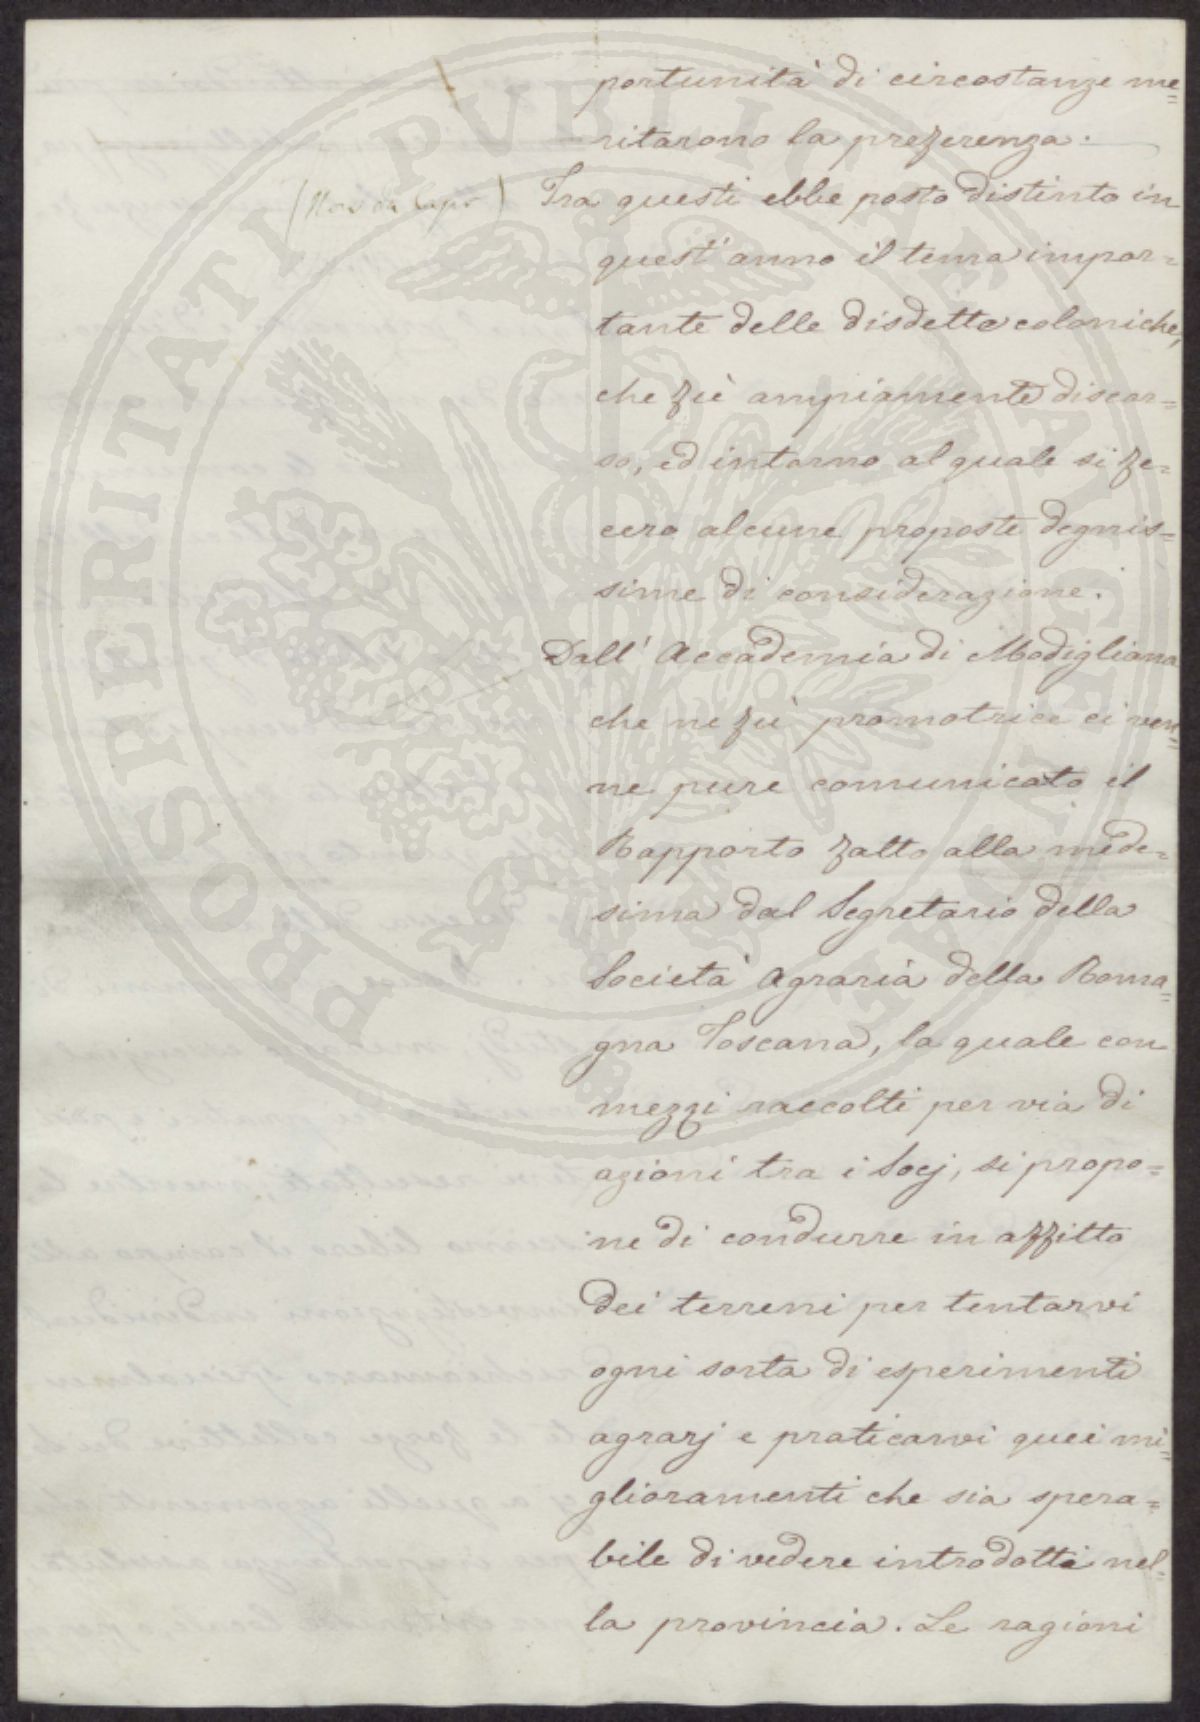 portunità di circostanze me=
ritarono la preferenza.
(Non da Capo) Tra questi ebbe posto distinto in
quest'anno il tema impor=
tante delle disdette coloniche,
che fù ampiamente discor=
so, ed intorno al quale si fe=
cero alcune proposte degnis=
sime di considerazione.
Dall' Accademia di Modigliana
che ne fù promotrice ci ven=
ne pure comunicato il
Rapporto fatto alla mede=
sima dal Segretario della
Società Agraria della Roma=
gna Toscana, la quale con
mezzi raccolti per via di
azioni tra i Socj, si propo=
ne di condurre in affitto
dei terreni per tentarvi
ogni sorta di esperimenti
agrarj e praticarvi quei mi=
glioramenti che sia spera=
bile di vedere introdotti nel=
la provincia. Le ragioni
PROSPERITATI PUBLICAE AUGENDAE